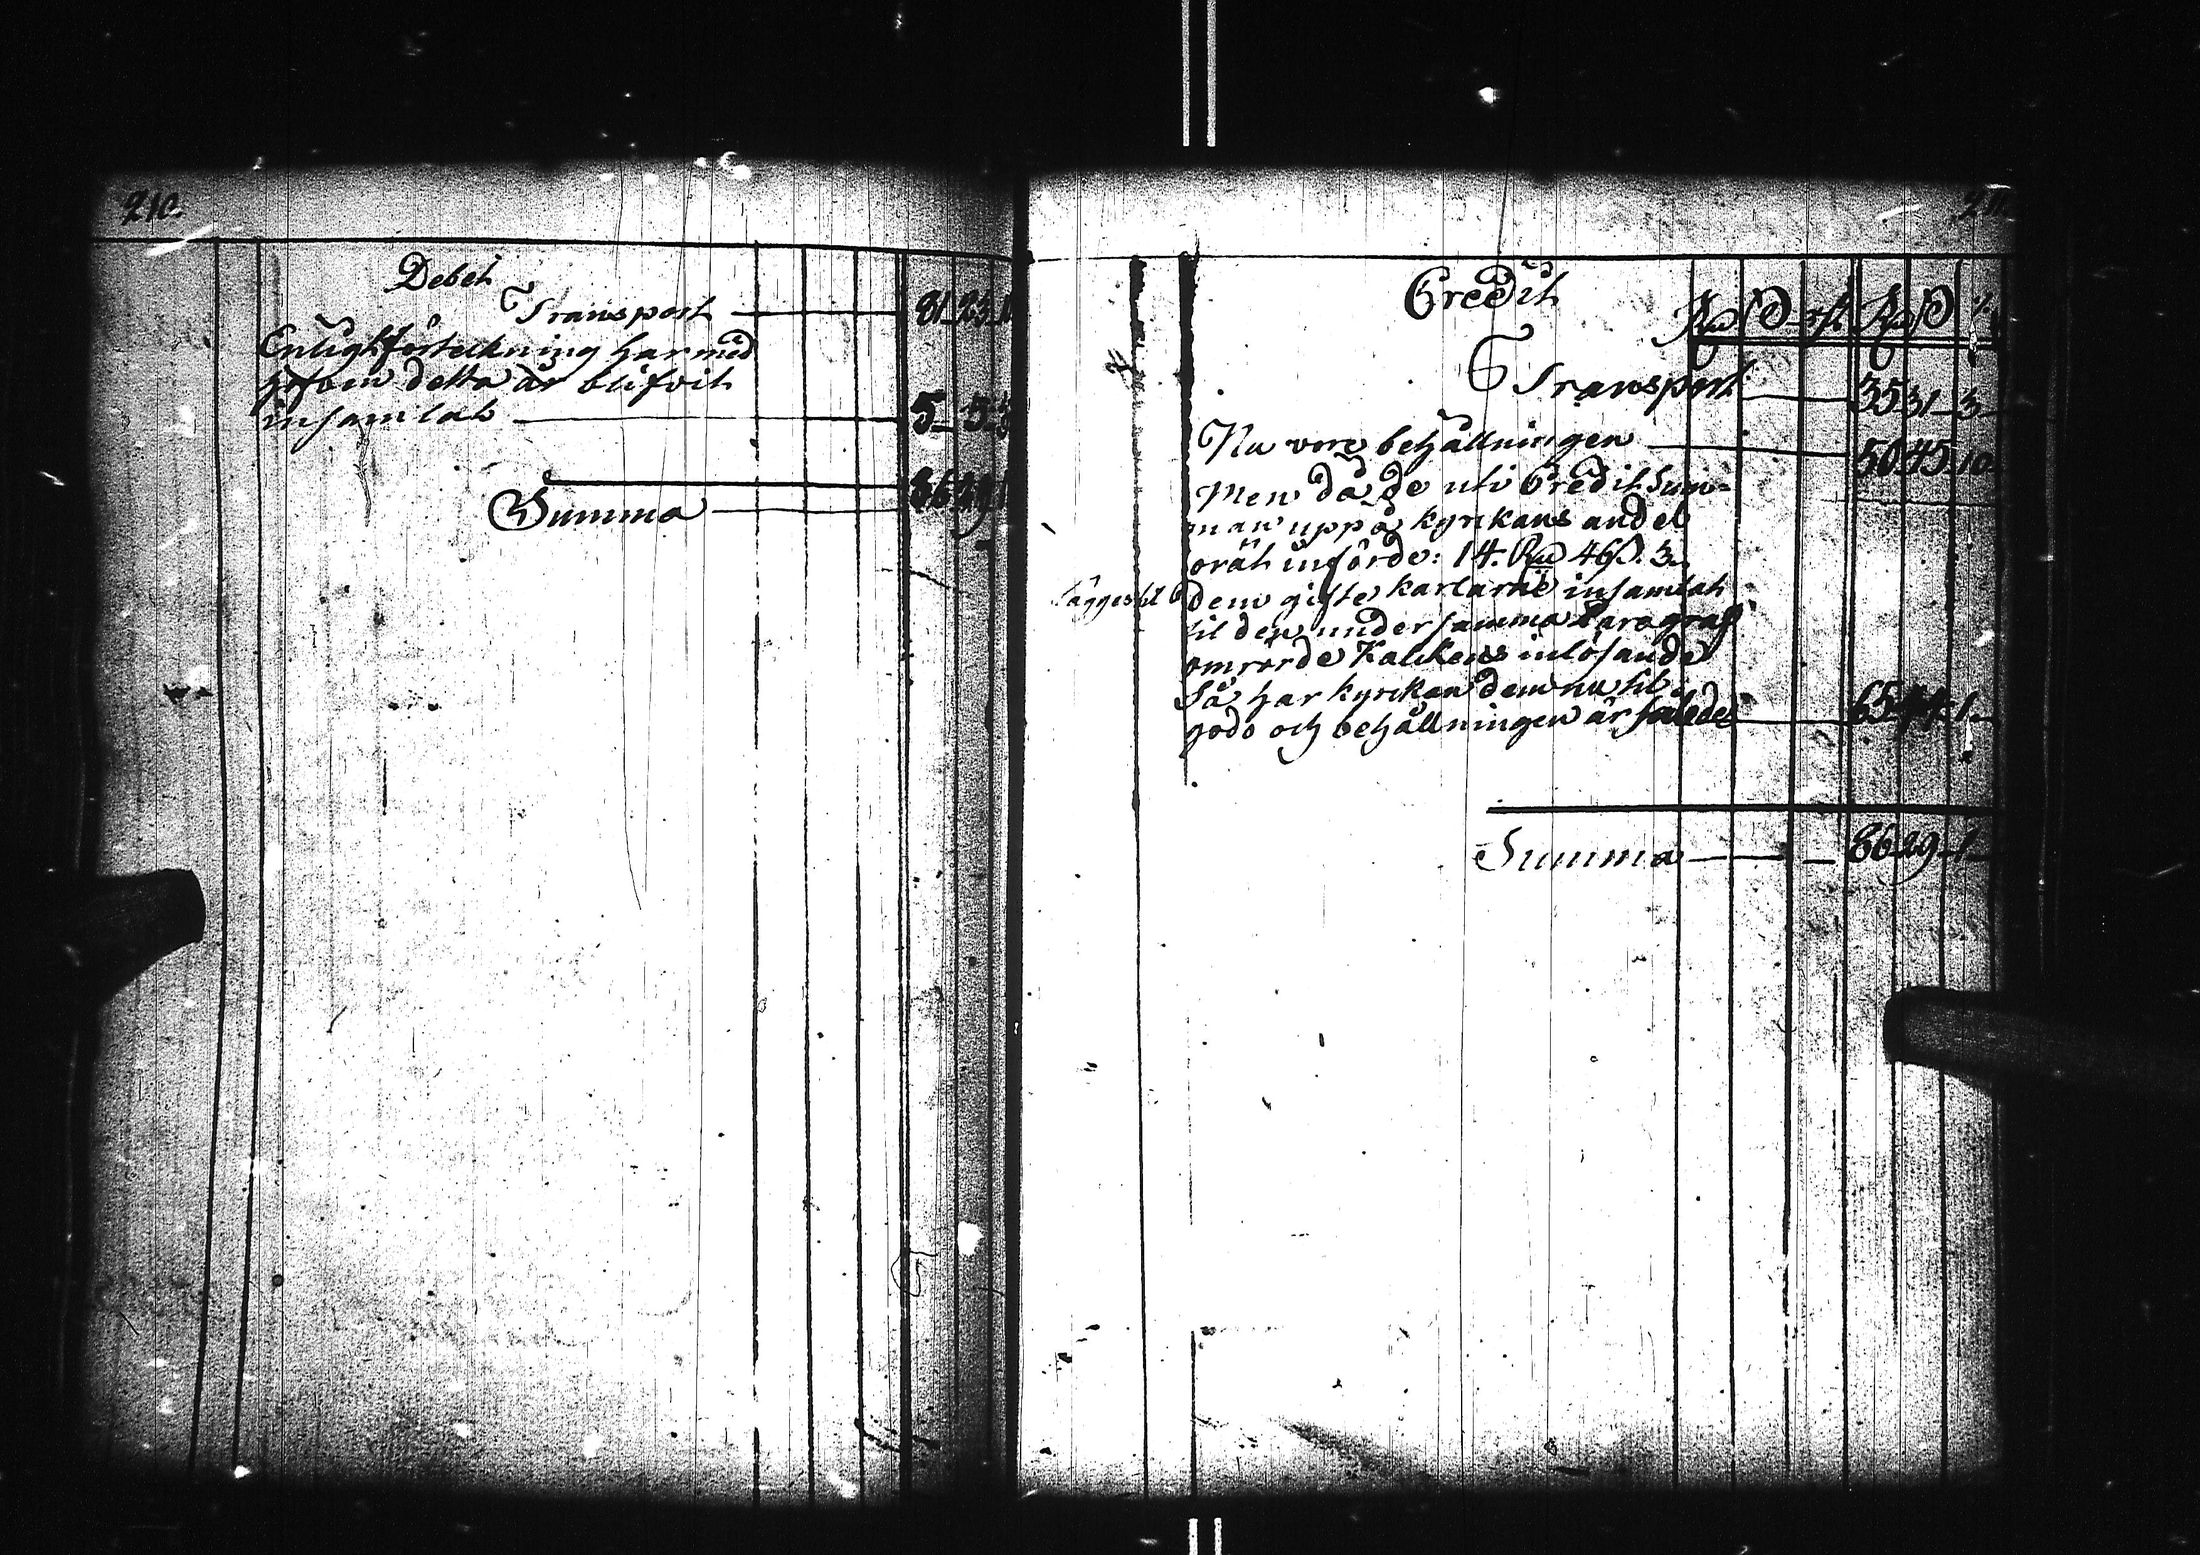 210
Debet
Transport 81 23
Enligt förteckning har med
håfom detta år blifvit
insamlat 5 5
Summa 86 29 1
211
Credit
Rd ß rst Rd ß
Transport 35 31 3
Nu vore behållningen 50 45 10
Men då de uti Credit Sum-
man uppå kyrkans andel
orät införde: 14. Rd 46 ß. 3.
lägges til dem gifte karlarne insamlat
til den under samma Paragraf
omrörde Kalkens inlösande
Så har kyrkan dem nu til
godo och behållningen är således 65 44 1
Summa 86 29 1